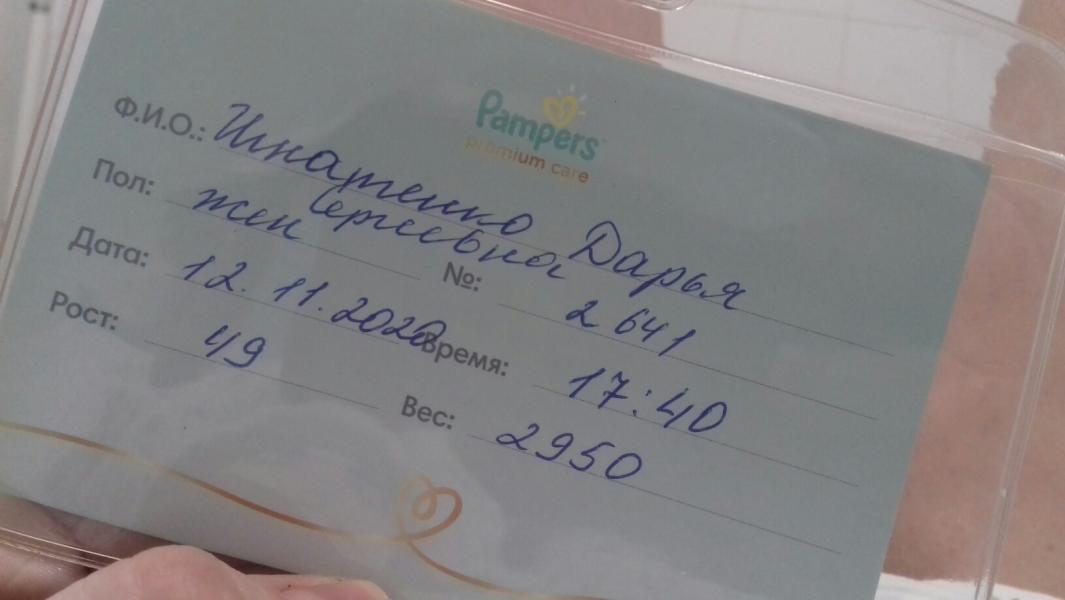 Pampers
premium care
Ф.И.О.: Игнатенко Дарья
Сергеевна
Пол: жен №: 2641
Дата: 12.11.2020 Время: 17:40
Рост: 49 Вес: 2950